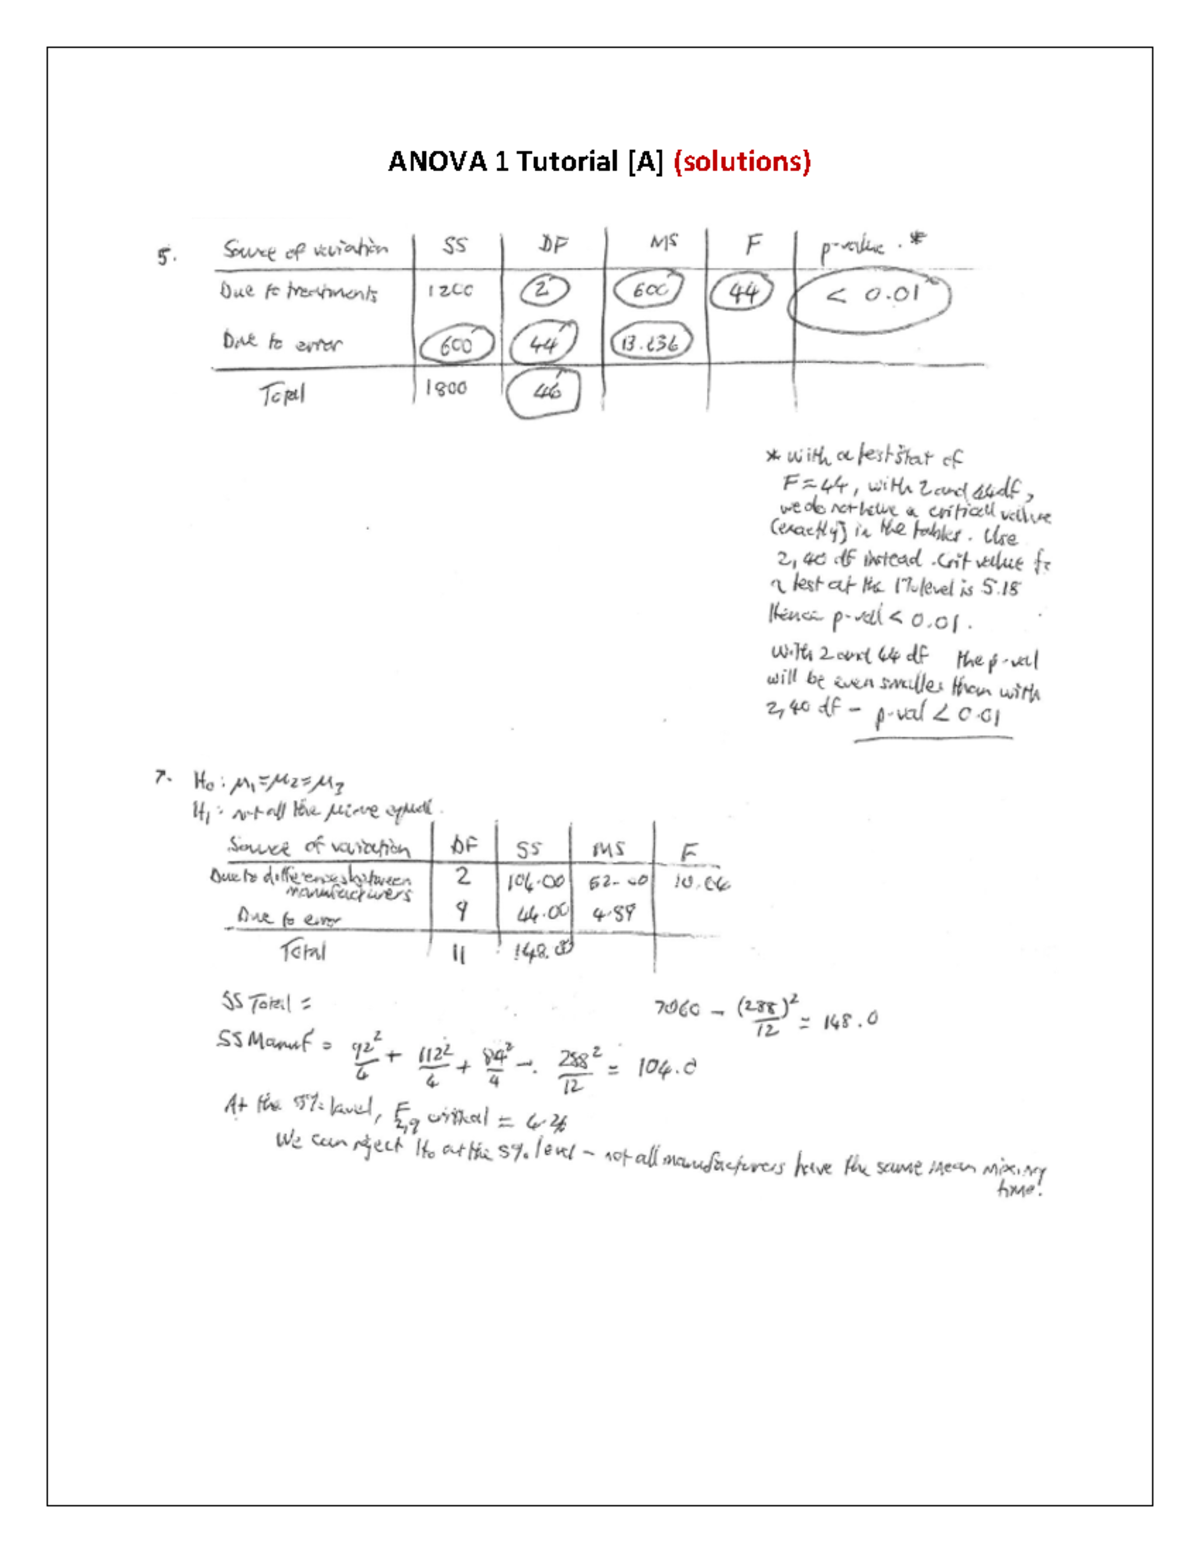 ANOVA 1 Tutorial [A] (solutions)
5. Source of variation SS DF MS F p-value. *
Due to treatments 1200 2 600 44 < 0.01*
Due to error 600 44 13.636
Total 1800 46
* with a test stat of
F=44, with 2 and 44 df,
we do not have a critical value
(exactly) in the tables. Use
2, 40 df instead. Crit value for
a test at the 1% level is 5.18
Hence p-val < 0.01.
With 2 and 44 df the p-val
will be even smaller than with
2, 40 df - p-val < 0.01
7. H₀: μ₁=μ₂=μ₃
H₁: not all the μ are equal.
Source of variation DF SS MS F
Due to differences between
manufacturers 2 104.00 52.00 10.64
Due to error 9 44.00 4.89
Total 11 148.00
SS Total = 7060 - (288)²/12 = 148.0
SS Manuf = 92²/4 + 112²/4 + 84²/4 - 288²/12 = 104.0
At the 5% level, F₂,₉ critical = 4.26
We can reject H₀ at the 5% level - not all manufacturers have the same mean mixing
time!